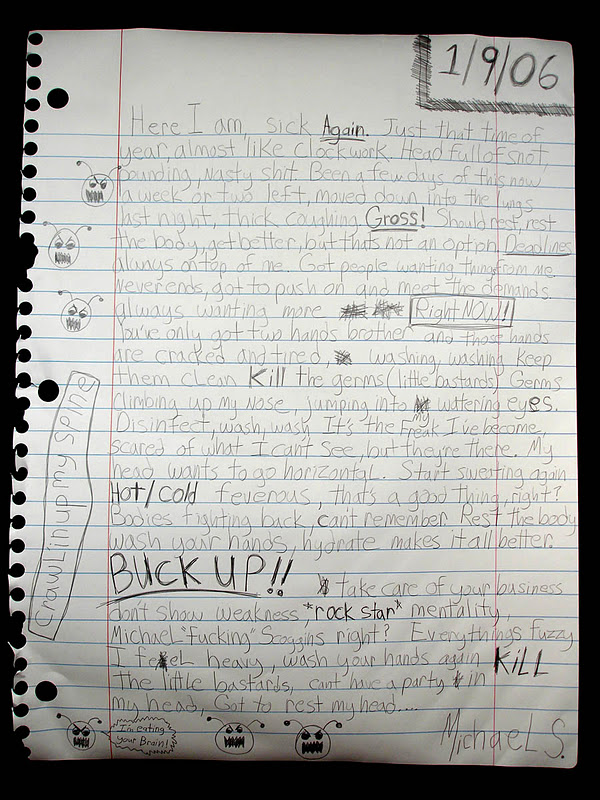 1/9/06
Here I am, sick Again. Just that time of
year, almost like clockwork. Head full of snot,
pounding, nasty shit. Been a few days of this now
a week or two left, moved down into the lungs
last night, thick coughing Gross! Should rest, rest
the body, get better, but thats not an option Deadlines
always on top of me. Got people wanting things from me
never ends, got to push on and meet the demands.
always wanting more Right NOW!
You've only got two hands brother and those hands
are cracked and tired, washing, washing keep
them clean Kill the germs (little bastards) Germs
climbing up my nose, jumping into my wattering eyes.
Disinfect, wash, wash It's the Freak I've become,
scared of what I can't see, but they're there. My
head wants to go horizontal. Start sweating again
Hot/cold feverous, that's a good thing, right?
Bodies fighting back, can't remember. Rest the body
wash your hands, hydrate makes it all better.
BUCK UP!! take care of your business
don't show weakness, *rock star* mentality,
Michael "Fucking" Scoggins right? Everythings fuzzy
I feel heavy, wash your hands again KiLL
The little bastards, cant have a party in
my head, Got to rest my head....
Michael S.
Crawlin up my spine
I'm eating
your Brain!